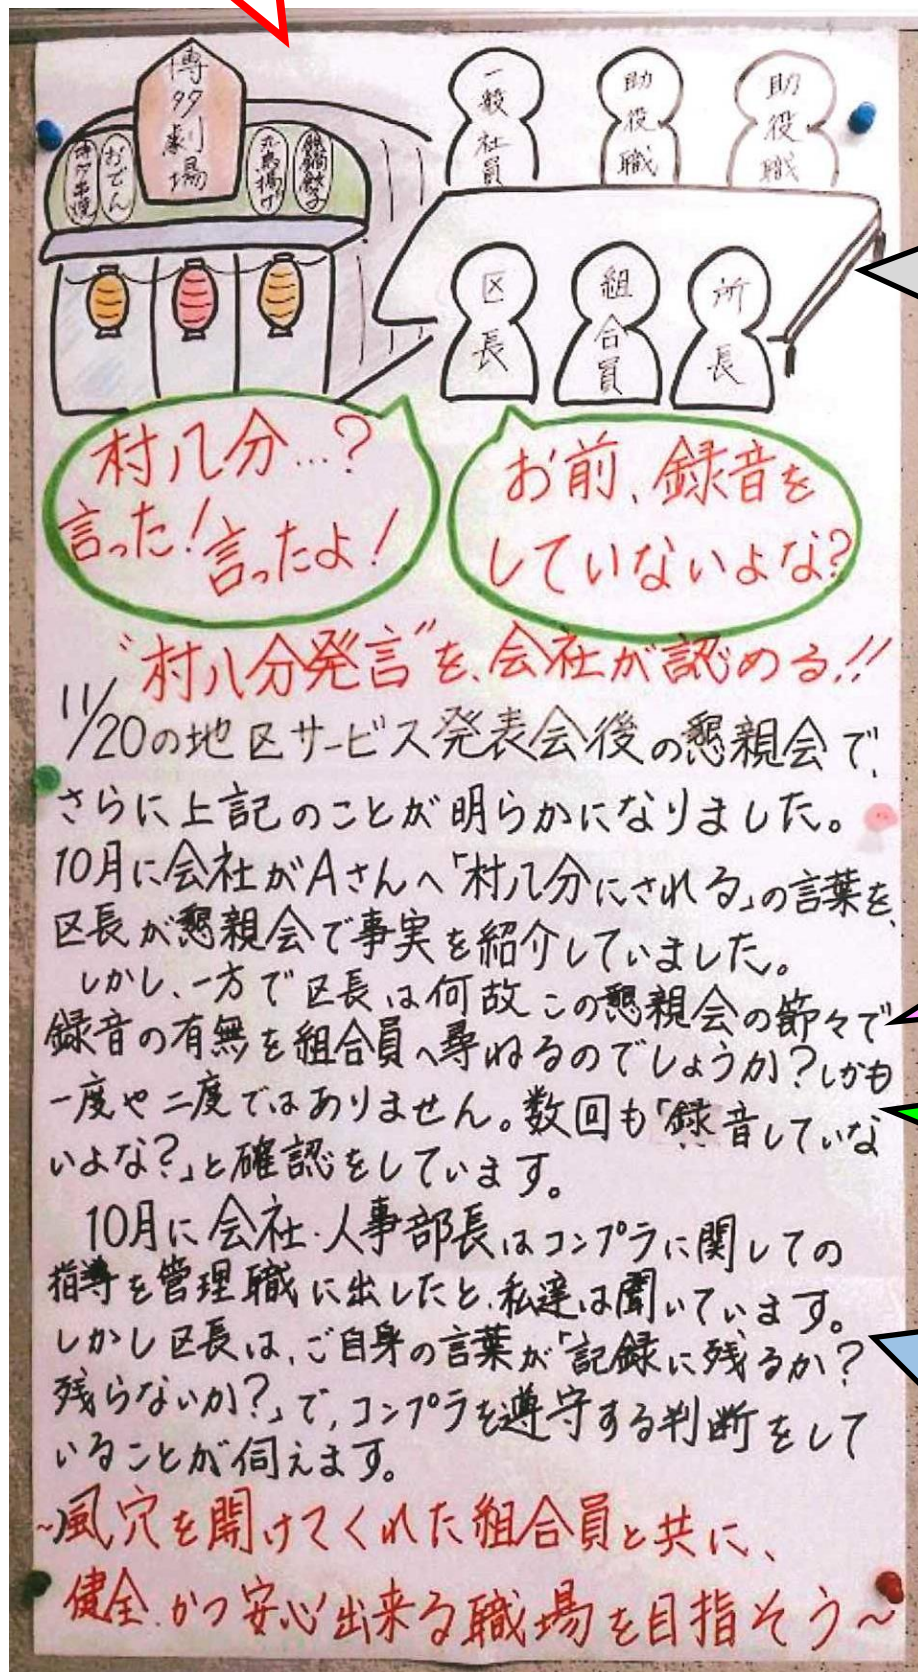 博多劇場
博多串焼
おでん
丸鳥揚げ
鉄鍋餃子
一般社員
助役職
助役職
区長
組合員
所長
村八分…?
言った!言ったよ!
お前、録音を
していないよな?
“村八分発言”を、会社が認める!!
11/20の地区サービス発表会後の懇親会で、
さらに上記のことが明らかになりました。
10月に会社がAさんへ「村八分にされる」の言葉を、
区長が懇親会で事実を紹介していました。
しかし、一方で区長は何故この懇親会の節々で
録音の有無を組合員へ尋ねるのでしょうか?しかも
一度や二度ではありません。数回も「録音していな
いよな?」と確認をしています。
10月に会社・人事部長はコンプラに関しての
指導を管理職に出したと、私達は聞いています。
しかし区長は、ご自身の言葉が「記録に残るか?
残らないか?」で、コンプラを遵守する判断をして
いることが伺えます。
~風穴を開けてくれた組合員と共に、
健全かつ安心出来る職場を目指そう~